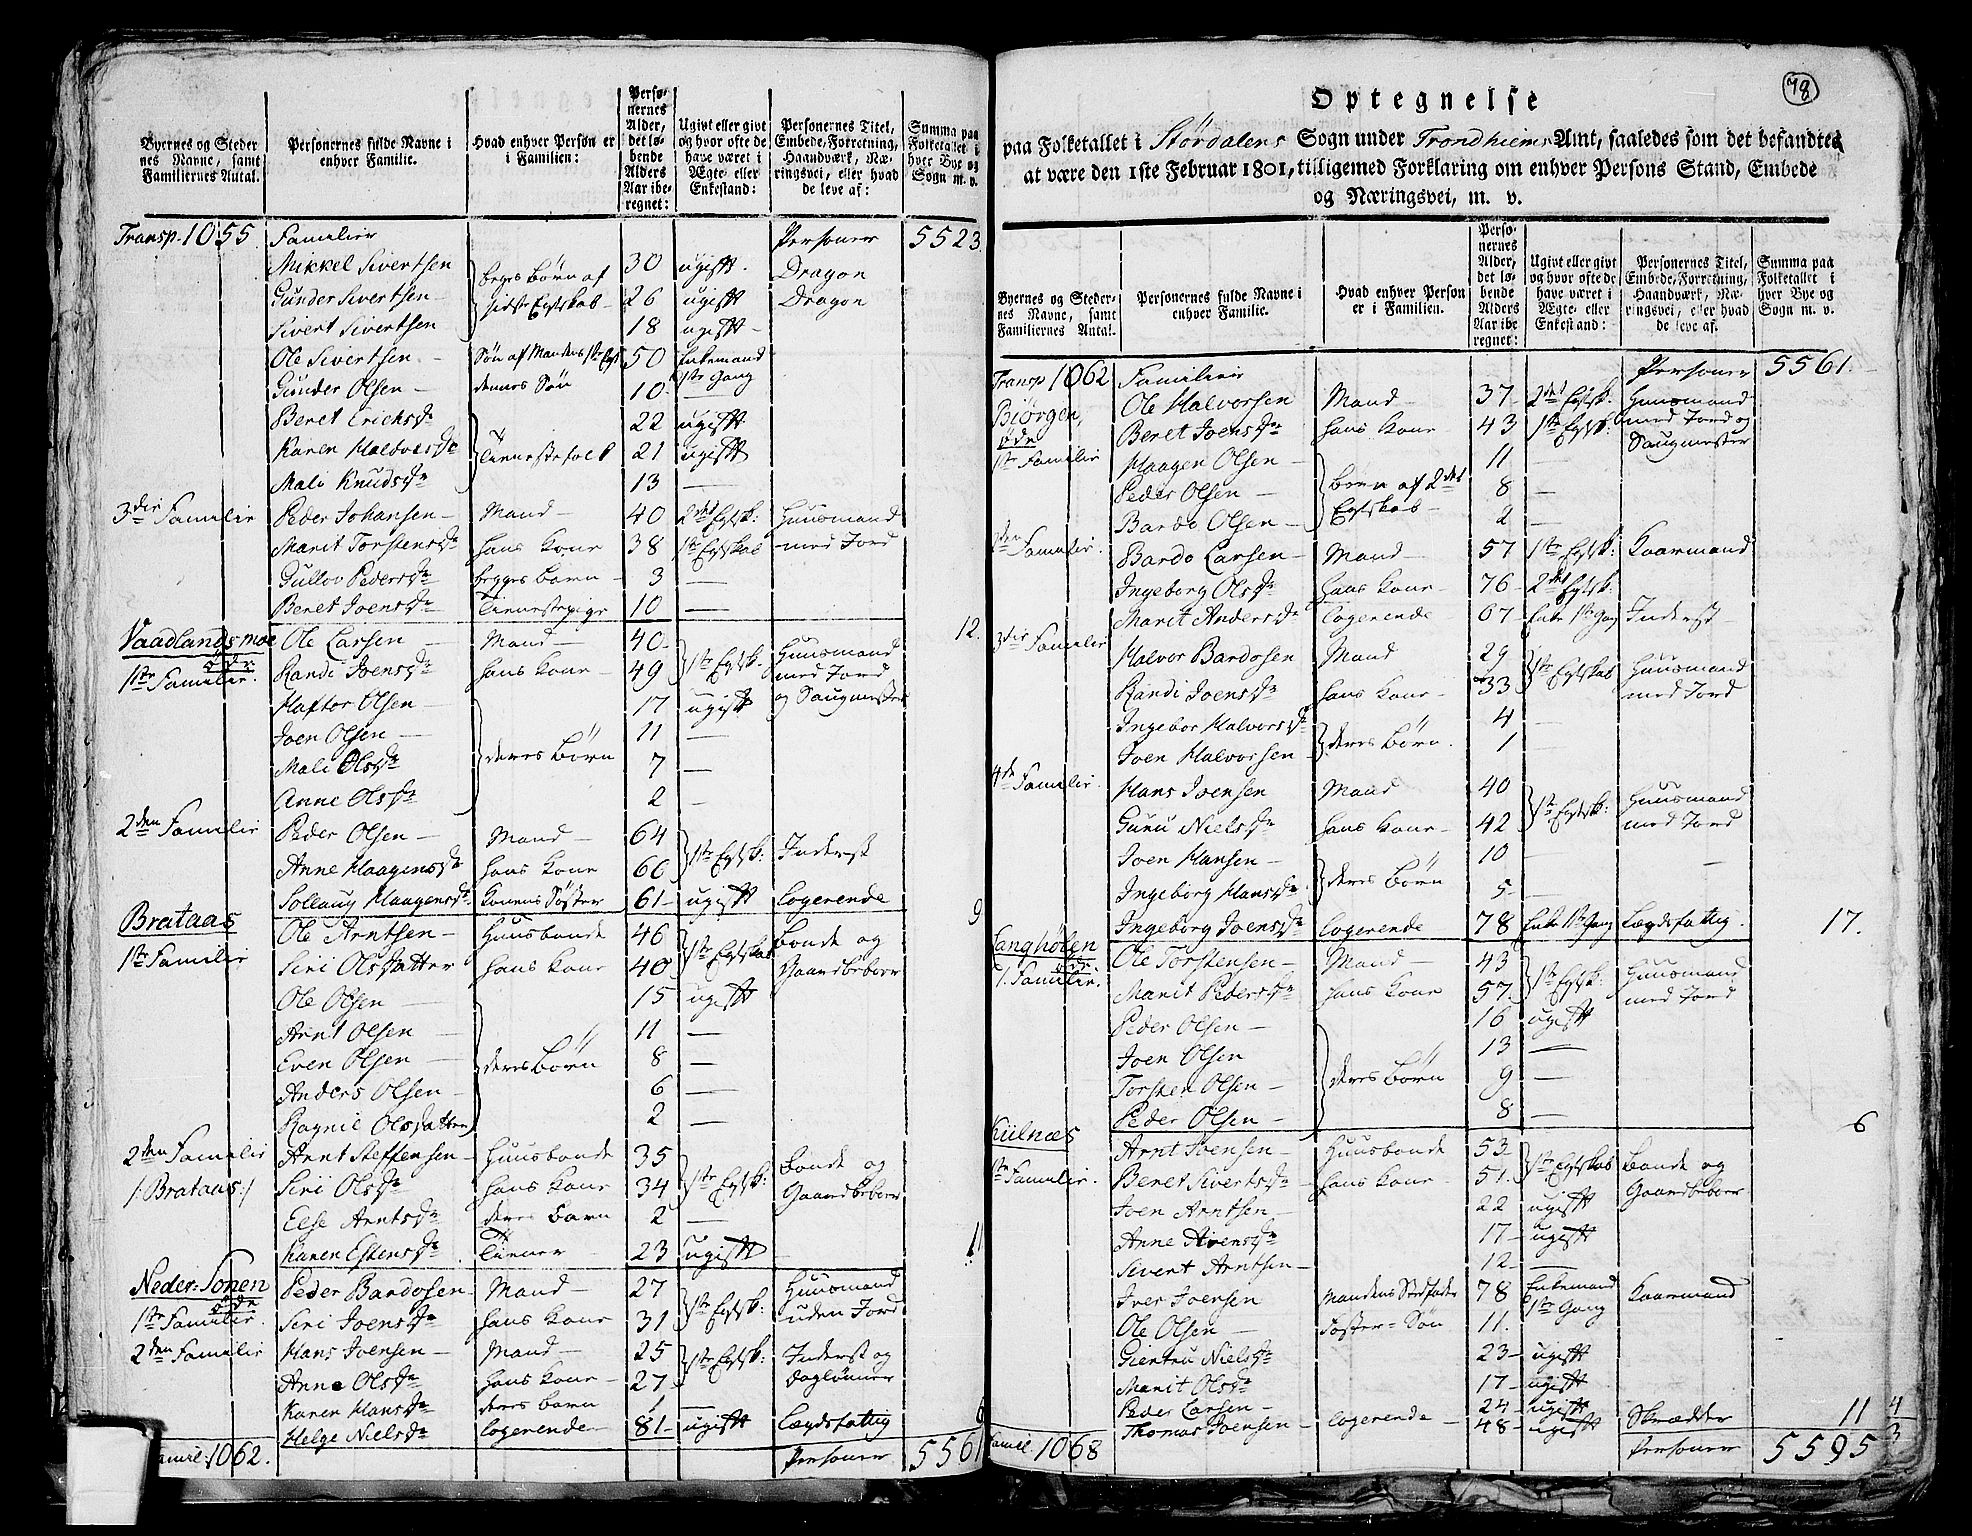 Byernes og Steder nes Navne, samt Familiernes Antal. | Personernes fulde Navne i enhver Familie. | Hvad enhver Person er i Familien: | Personernes Alder, det løbende Alders Aar iberegnet: | Ugivt eller givt og hvor ofte de have været i Ægte- eller Enkestand: | Personernes Titel, Embede, Forretning, Haandværk, Næringsvei, eller hvad de leve af: | Summa paa Folketallet i hver Bye og Sogn m. v.
Transp. 1055. Familier Personer 5523
Mikkel Sivertsen 30 ugift. Dragon
Gunder Sivertsen 26 ugift Dragon
Sivert Sivertsen 18 ugift
begges Børn af sidste Egteskab
Ole Sivertsen Søn af Mandens 1ste Egt 50 Enkemand 1ste Gang
Gunder Olsen dennes Søn 10
Beret Erichsdr 22 ugift
Karen Halvorsdr 21 ugift
Tienestefolk
Mali Knudsdr 13
3die Familie Peder Johansen Mand 40 2det Egtsk: Huusmand
Marit Torstensdr hans Kone 38 1ste Egtskab med Jord
Gullov Pedersdr begges Barn 3
Beret Joensdr Tienestepige 10
12.
Vaadlandsmoe
øde
1ste Familie.
Ole Larsen Mand 40 Huusmand
Randi Joensdr hans Kone 49 1ste Egtsk. med Jord
Haftor Olsen 17 ugift og Saugmester
Joen Olsen 11
Mali Olsdr deres Børn 7
Anne Olsdr 2
2den Familie Peder Olsen Mand 64
Anne Haagensdr hans Kone 60 1ste Egtsk: Inderst
Sollaug Haagensdr Konens Søster 61 ugift Logerende
9
Brataas
1ste Familie
Ole Arntsen Huusbonde 46 1ste Egtskab Bonde og
Siri Olsdatter hans Kone 40 Gaardbeboer
Ole Olsen 15 ugift
Arnt Olsen 11
Even Olsen deres Børn 8
Anders Olsen 6
Ragnil Olsdatter 2
2den Familie Arnt Steffensen Huusbonde 35 1ste Egtsk: Bonde og
/:Brataas:/ Siri Olsdr hans Kone 34 Gaardbeboer
Else Arntsdr deres Barn 2
Karen Estensdr Tiener 23 ugift
11
Neder-Sonen
øde
Peder Bardosen Mand 27 Huusmand
1ste Familie. Siri Joensdr hans Kone 31 1ste Egtsk: uden Jord
2den Familie Hans Joensen Mand 25 1ste Egtsk: Inderst og
Anne Olsdr hans Kone 27 Dagløner
Karen Hansdr deres Barn 1
Helge Nielsdr Logerende 81 ugift Lægdsfattig
6
Famil: 1062. Personer 5561
78
Optegnelse
paa Folketallet i Størdalens Sogn under Trondhiems Amt, saaledes som det befandtes
at være den 1ste Februar 1801, tilligemed Forklaring om enhver Persons Stand, Embede
og Næringsvei, m. v.
Byernes og Stedernes Navne, samt Familiernes Antal. | Personernes fulde Navne i enhver Familie. | Hvad enhver Person er i Familien. | Personernes Alder, det løbende Alders Aar iberegnet: | Ugivt eller givt og hvor ofte de have været i Ægte- eller Enkestand: | Personernes Titel, Embede, Forretning, Haandværk, Næringsvei, eller hvad de leve af. | Summa paa Folketallet i hver Bye og Sogn m. v.
Transp 1062 Familier Personer 5561.
Biørgen,
øde
1ste Familie
Ole Halvorsen Mand 37 2det Egtsk. Huusmand
Beret Joensdr hans Kone 43 1ste Egtsk: med Jord og Saugmester
Haagen Olsen 11
Peder Olsen Børn af 2det Egtskab 8
Bardo Olsen 2
2den Familie. Bardo Larsen Mand 57 1ste Egtsk: Kaarmand
Ingeborg Olsdr hans Kone 76 2det Egtsk:
Marit Andersdr Logerende 67 Enke 1ste Gang Inderst
3die Familie Halvor Bardosen Mand 29 1ste Egtskab Huusmand
Randi Joensdr hans Kone 33 med Jord
Ingebor Halvorsdr 4
Joen Halvorsen deres Børn. 1
4de Familie. Hans Joensen Mand 40 1ste Egtsk: Huusmand
Guru Nielsdr hans Kone 42 med Jord
Joen Hansen 10
Ingeborg Hansdr deres Børn 5
Ingeborg Joensdr Logerende 78 Enke 1ste Gang Lægdsfattig. 17.
Langhølen
øde
1. Familie.
Ole Torstensen Mand 43 1ste Egtsk: Huusmand
Marit Pedersdr hans Kone 57. med Jord
Peder Olsen 16 ugift
Joen Olsen 13
Torsten Olsen deres Børn 9
Peder Olsen 8
6
Kiilnæs
1ste Familie.
Arnt Ivensen Huusbonde 53 1ste Egtskab Bonde og
Beret Sivertsdr hans Kone 51. Gaardbeboer
Joen Arntsen 22 ugift
Anne 17 ugift
Sivert Arntsen 12
Iver Joensen Mandens Stedfader 78 Enkemand 1ste Gang Kaarmand
Ole Olsen Foster-Søn 11.
Giertru Nielsdr 23 ugift
Marit Olsdr 17 ugift
Peder Larsen 24 ugift
Thomas Joensen Logerende 48 ugift Skrædder 11
4
3
Famil. 1068 Personer 5595